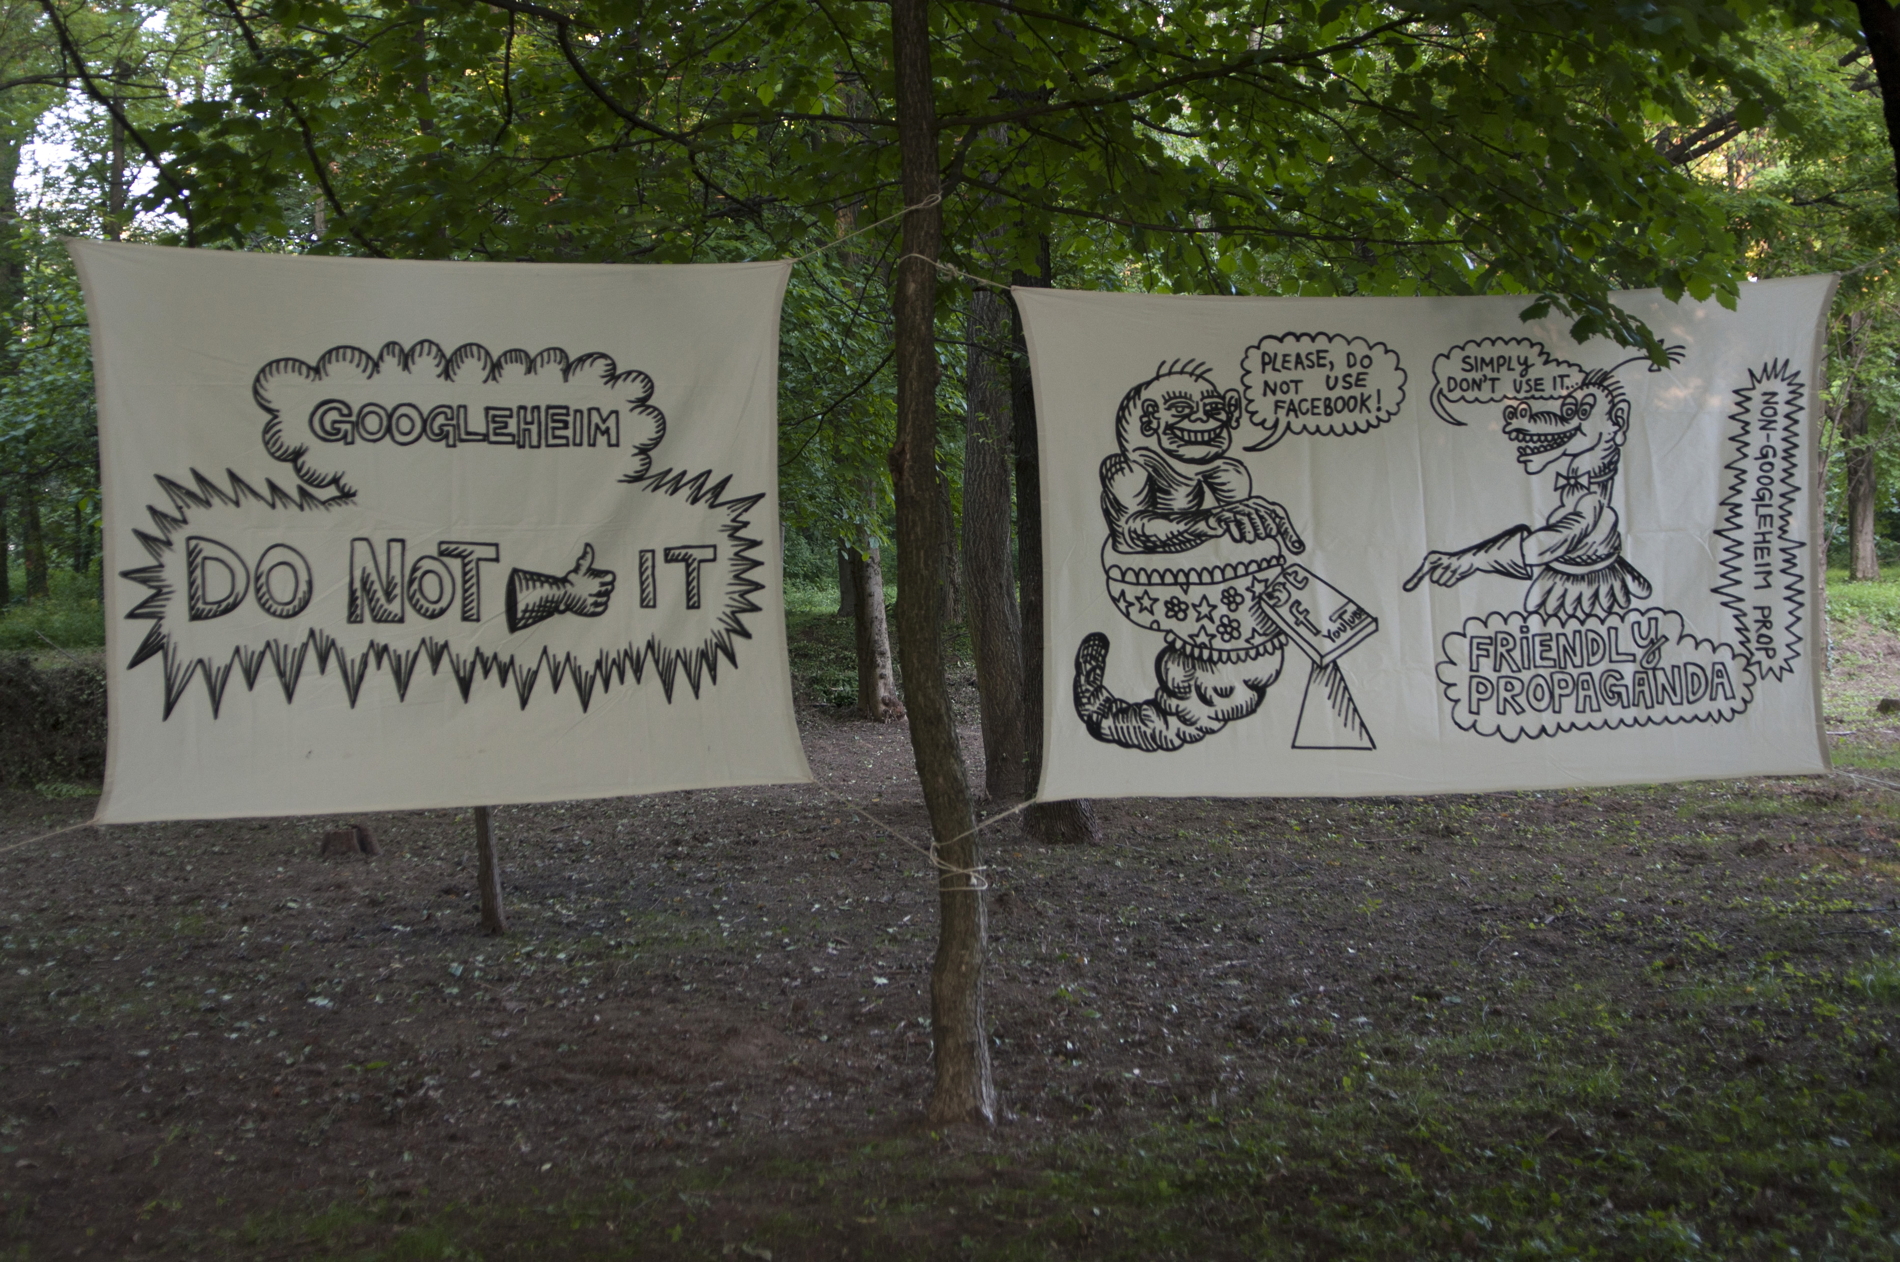 GOOGLEHEIM
DO NOT IT
PLEASE, DO
NOT USE
FACEBOOK!
SIMPLY
DON'T USE IT...
YOUTUB
FRIENDLY
PROPAGANDA
NON-GOOGLEHEIM PROP